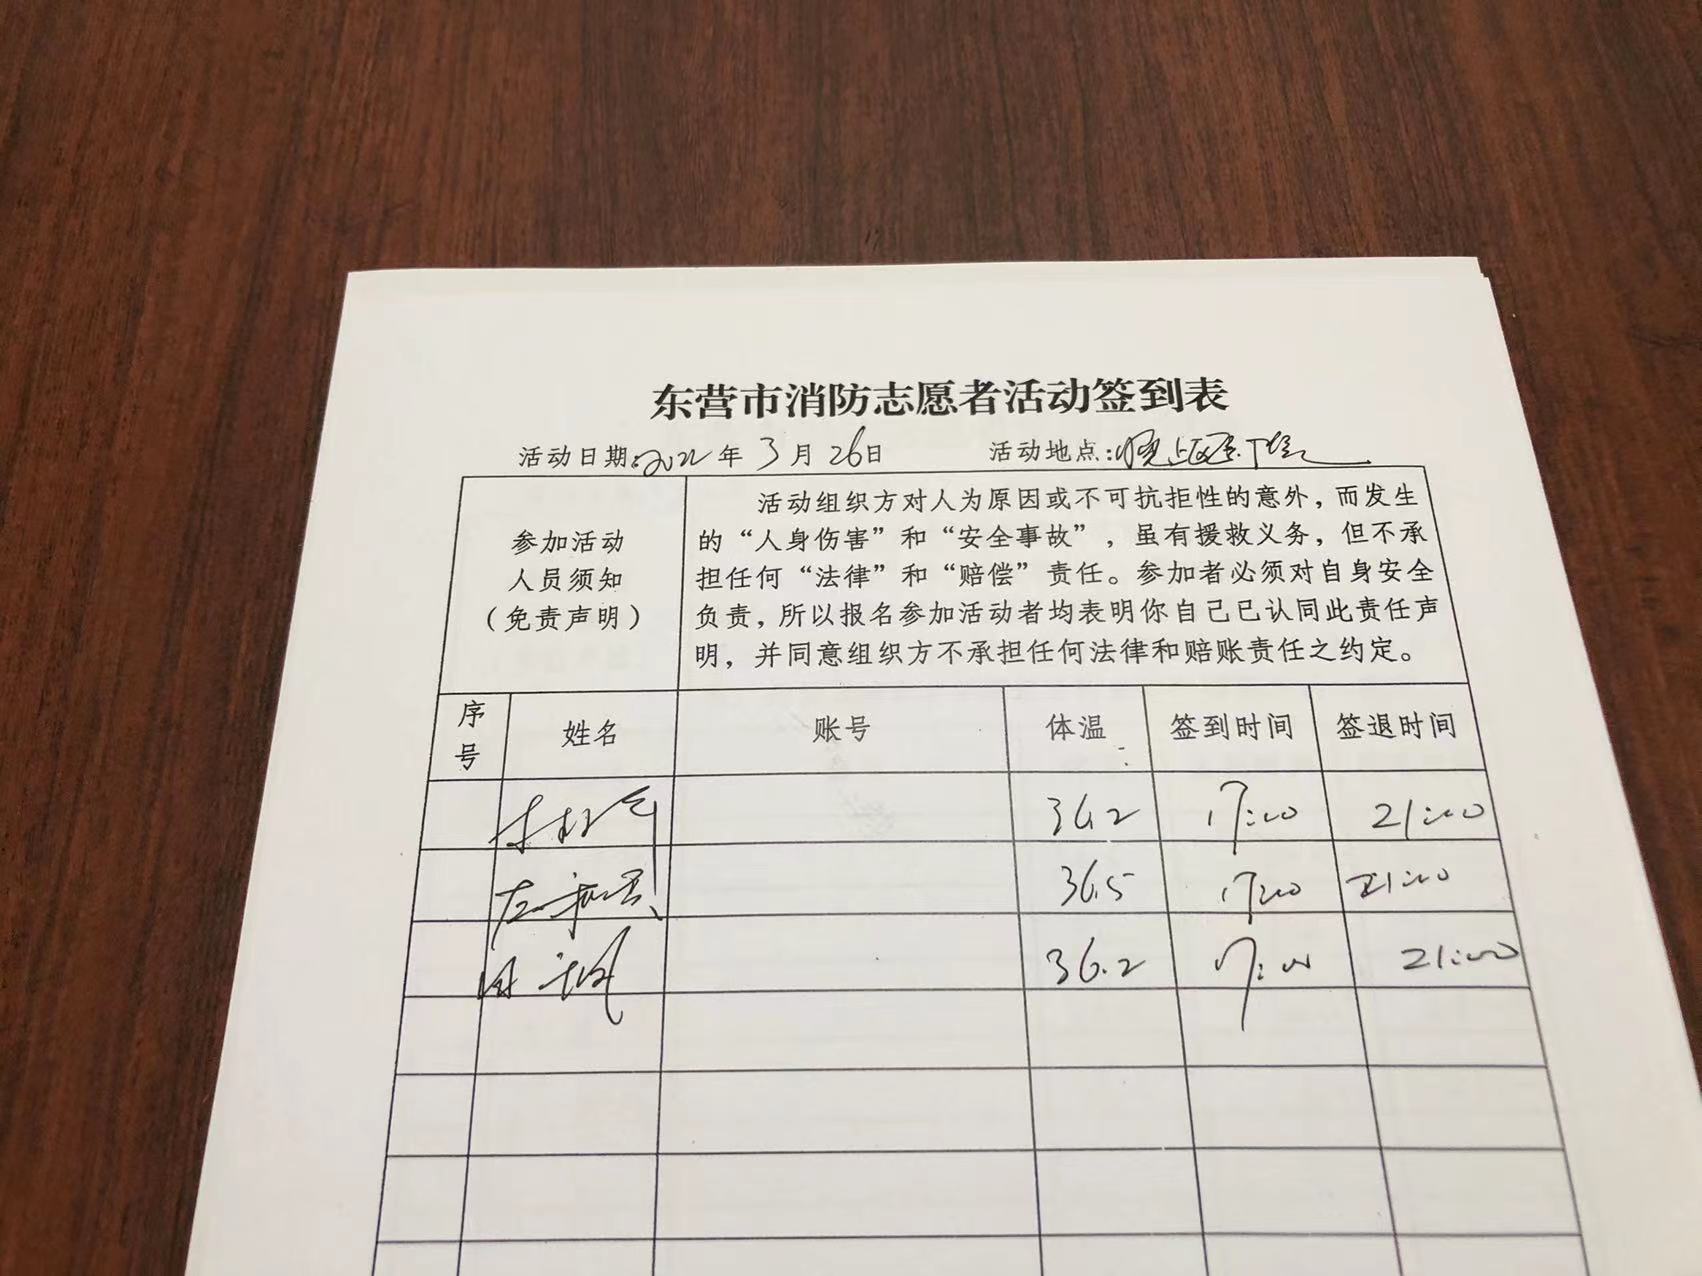 东营市消防志愿者活动签到表
活动日期:2022年3月26日 活动地点:
参加活动
人员须知
(免责声明)
活动组织方对人为原因或不可抗拒性的意外，而发生
的“人身伤害”和“安全事故”，虽有援救义务，但不承
担任何“法律”和“赔偿”责任。参加者必须对自身安全
负责，所以报名参加活动者均表明你自己已认同此责任声
明，并同意组织方不承担任何法律和赔账责任之约定。
序号 姓名 账号 体温 签到时间 签退时间
36.2 17:00 21:00
36.5 17:00 21:00
36.2 17:00 21:00